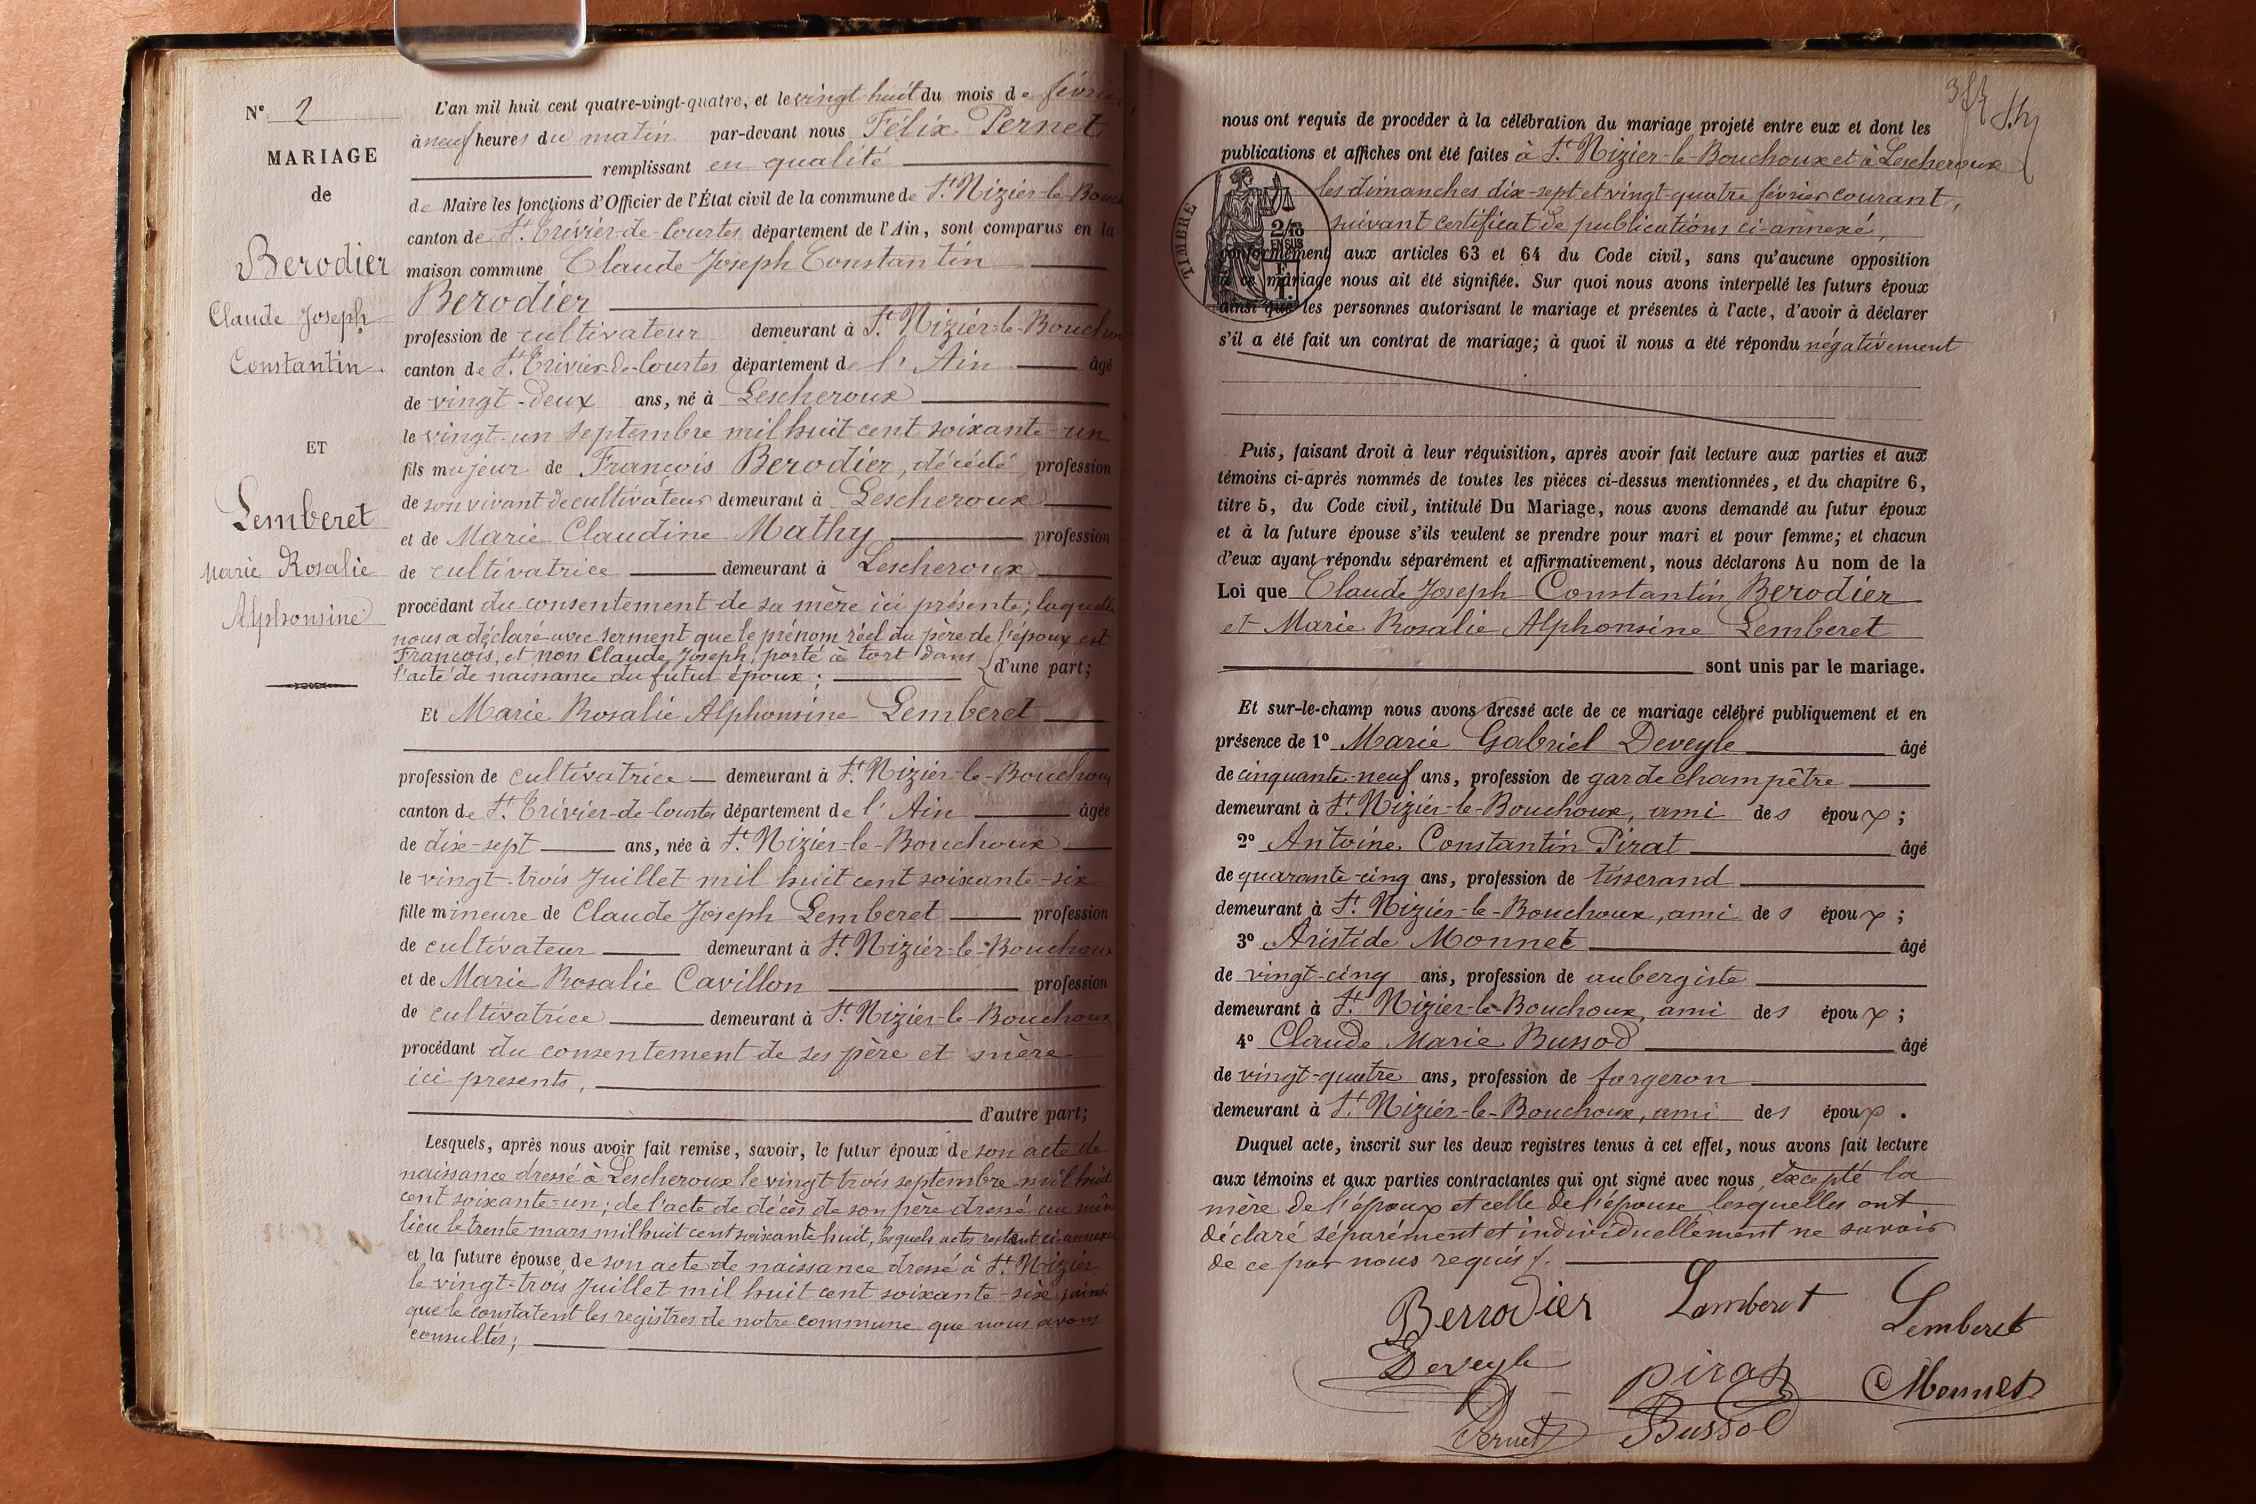 N° 2
MARIAGE
de
Berodier
Claude Joseph
Constantin.
ET
Lemberet
Marie Rosalie
Alphonsine
L'an mil huit cent quatre-vingt-quatre, et le vingt-huit du mois de février
à neuf heures du matin par-devant nous Félix Pernet
remplissant en qualité
de Maire les fonctions d'Officier de l'État civil de la commune de St. Nizier-le-Bouch
canton de St. Trivier-de-Courtes département de l'Ain, sont comparus en la
maison commune Claude Joseph Constantin
Berodier
profession de cultivateur demeurant à St. Nizier-le-Bouchou
canton de St. Trivier-de-Courtes département de l'Ain âgé
de vingt-deux ans, né à Lescheroux
le vingt-un septembre mil huit cent soixante-un
fils majeur de François Berodier, décédé, profession
de son vivant de cultivateur demeurant à Lescheroux
et de Marie Claudine Mathy profession
de cultivatrice demeurant à Lescheroux
procédant du consentement de sa mère ici présente; laquelle
nous a déclaré avec serment que le prénom réel du père de l'époux est
François, et non Claude Joseph, porté à tort dans
l'acte de naissance du futur époux; d'une part;
Et Marie Rosalie Alphonsine Lemberet
profession de cultivatrice demeurant à St. Nizier-le-Bouchoux
canton de St. Trivier-de-Courtes département de l'Ain âgée
de dix-sept ans, née à St. Nizier-le-Bouchoux
le vingt-trois Juillet mil huit cent soixante-six
fille mineure de Claude Joseph Lemberet profession
de cultivateur demeurant à St. Nizier-le-Bouchoux
et de Marie Rosalie Cavillon profession
de cultivatrice demeurant à St. Nizier-le-Bouchoux
procédant du consentement de ses père et mère
ici presents,
d'autre part;
Lesquels, après nous avoir fait remise, savoir, le futur époux de son acte de
naissance dressé à Lescheroux le vingt trois septembre mil huit
cent soixante-un; de l'acte de décès de son père dressé au même
lieu le trente mars mil huit cent soixante huit, lesquels actes restent ci-annexés
et la future épouse, de son acte de naissance dressé à St. Nizier
le vingt-trois Juillet mil huit cent soixante-six, ainsi
que le constatent les registres de notre commune que nous avons
consultés;
nous ont requis de procéder à la célébration du mariage projeté entre eux et dont les
publications et affiches ont été faites à St. Nizier-le-Bouchoux et à Lescheroux
les dimanches dix-sept et vingt-quatre février courant,
suivant certificat de publications ci-annexé,
TIMBRE
2/10 EN SUS
conformément aux articles 63 et 64 du Code civil, sans qu'aucune opposition
à ce mariage nous ait été signifiée. Sur quoi nous avons interpellé les futurs époux
ainsi que les personnes autorisant le mariage et présentes à l'acte, d'avoir à déclarer
s'il a été fait un contrat de mariage; à quoi il nous a été répondu négativement
Puis, faisant droit à leur réquisition, après avoir fait lecture aux parties et aux
témoins ci-après nommés de toutes les pièces ci-dessus mentionnées, et du chapitre 6,
titre 5, du Code civil, intitulé Du Mariage, nous avons demandé au futur époux
et à la future épouse s'ils veulent se prendre pour mari et pour femme; et chacun
d'eux ayant répondu séparément et affirmativement, nous déclarons Au nom de la
Loi que Claude Joseph Constantin Berodier
et Marie Rosalie Alphonsine Lemberet
sont unis par le mariage.
Et sur-le-champ nous avons dressé acte de ce mariage célébré publiquement et en
présence de 1° Marie Gabriel Deveyle âgé
de cinquante-neuf ans, profession de garde champêtre
demeurant à St. Nizier-le-Bouchoux, ami des époux;
2° Antoine Constantin Pirat âgé
de quarante-cinq ans, profession de tisserand
demeurant à St. Nizier-le-Bouchoux, ami des époux;
3° Aristide Monnet âgé
de vingt-cinq ans, profession de aubergiste
demeurant à St. Nizier-le-Bouchoux, ami des époux;
4° Claude Marie Bussod âgé
de vingt-quatre ans, profession de forgeron
demeurant à St. Nizier-le-Bouchoux, ami des époux.
Duquel acte, inscrit sur les deux registres tenus à cet effet, nous avons fait lecture
aux témoins et aux parties contractantes qui ont signé avec nous, excepté la
mère de l'époux et celle de l'épouse lesquelles ont
déclaré séparément et individuellement ne savoir
de ce par nous requis /.
Berrodier Lamberet Lemberet
Deveyle Pirat Monnet
Pernet Bussod